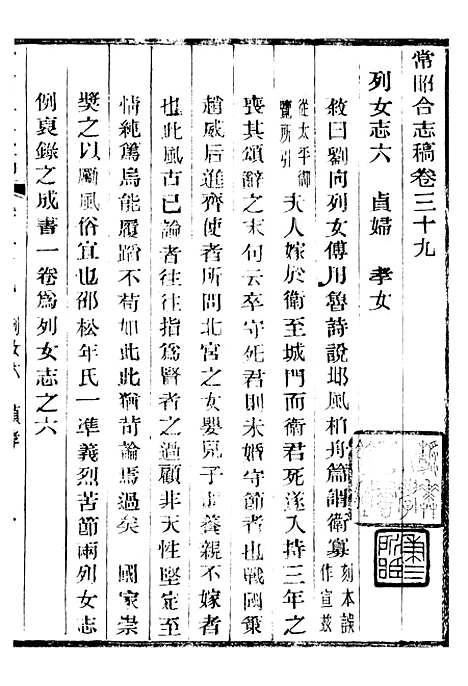 常昭合志稿卷三十九
列女志六　貞婦　孝女
敘曰劉向列女傳用魯詩說邶風柏舟篇謂衛寡刻本誤作宣茲
從太平御覽所引夫人嫁於衛至城門而衛君死遂入持三年之
喪其頌辭之末句云卒守死君則未婚守節者也戰國策
趙威后進齊使者所問北宮之女嬰兒子至養親不嫁者
也此風古已論者往往指爲賢者之過顧非天性堅定至
情純篤烏能履蹈不苟如此此猶苛論焉過矣　國家崇
獎之以勵風俗宜也邵松年氏一準義烈苦節兩列女志
例裒錄之成書一卷爲列女志之六
列女六　貞孝